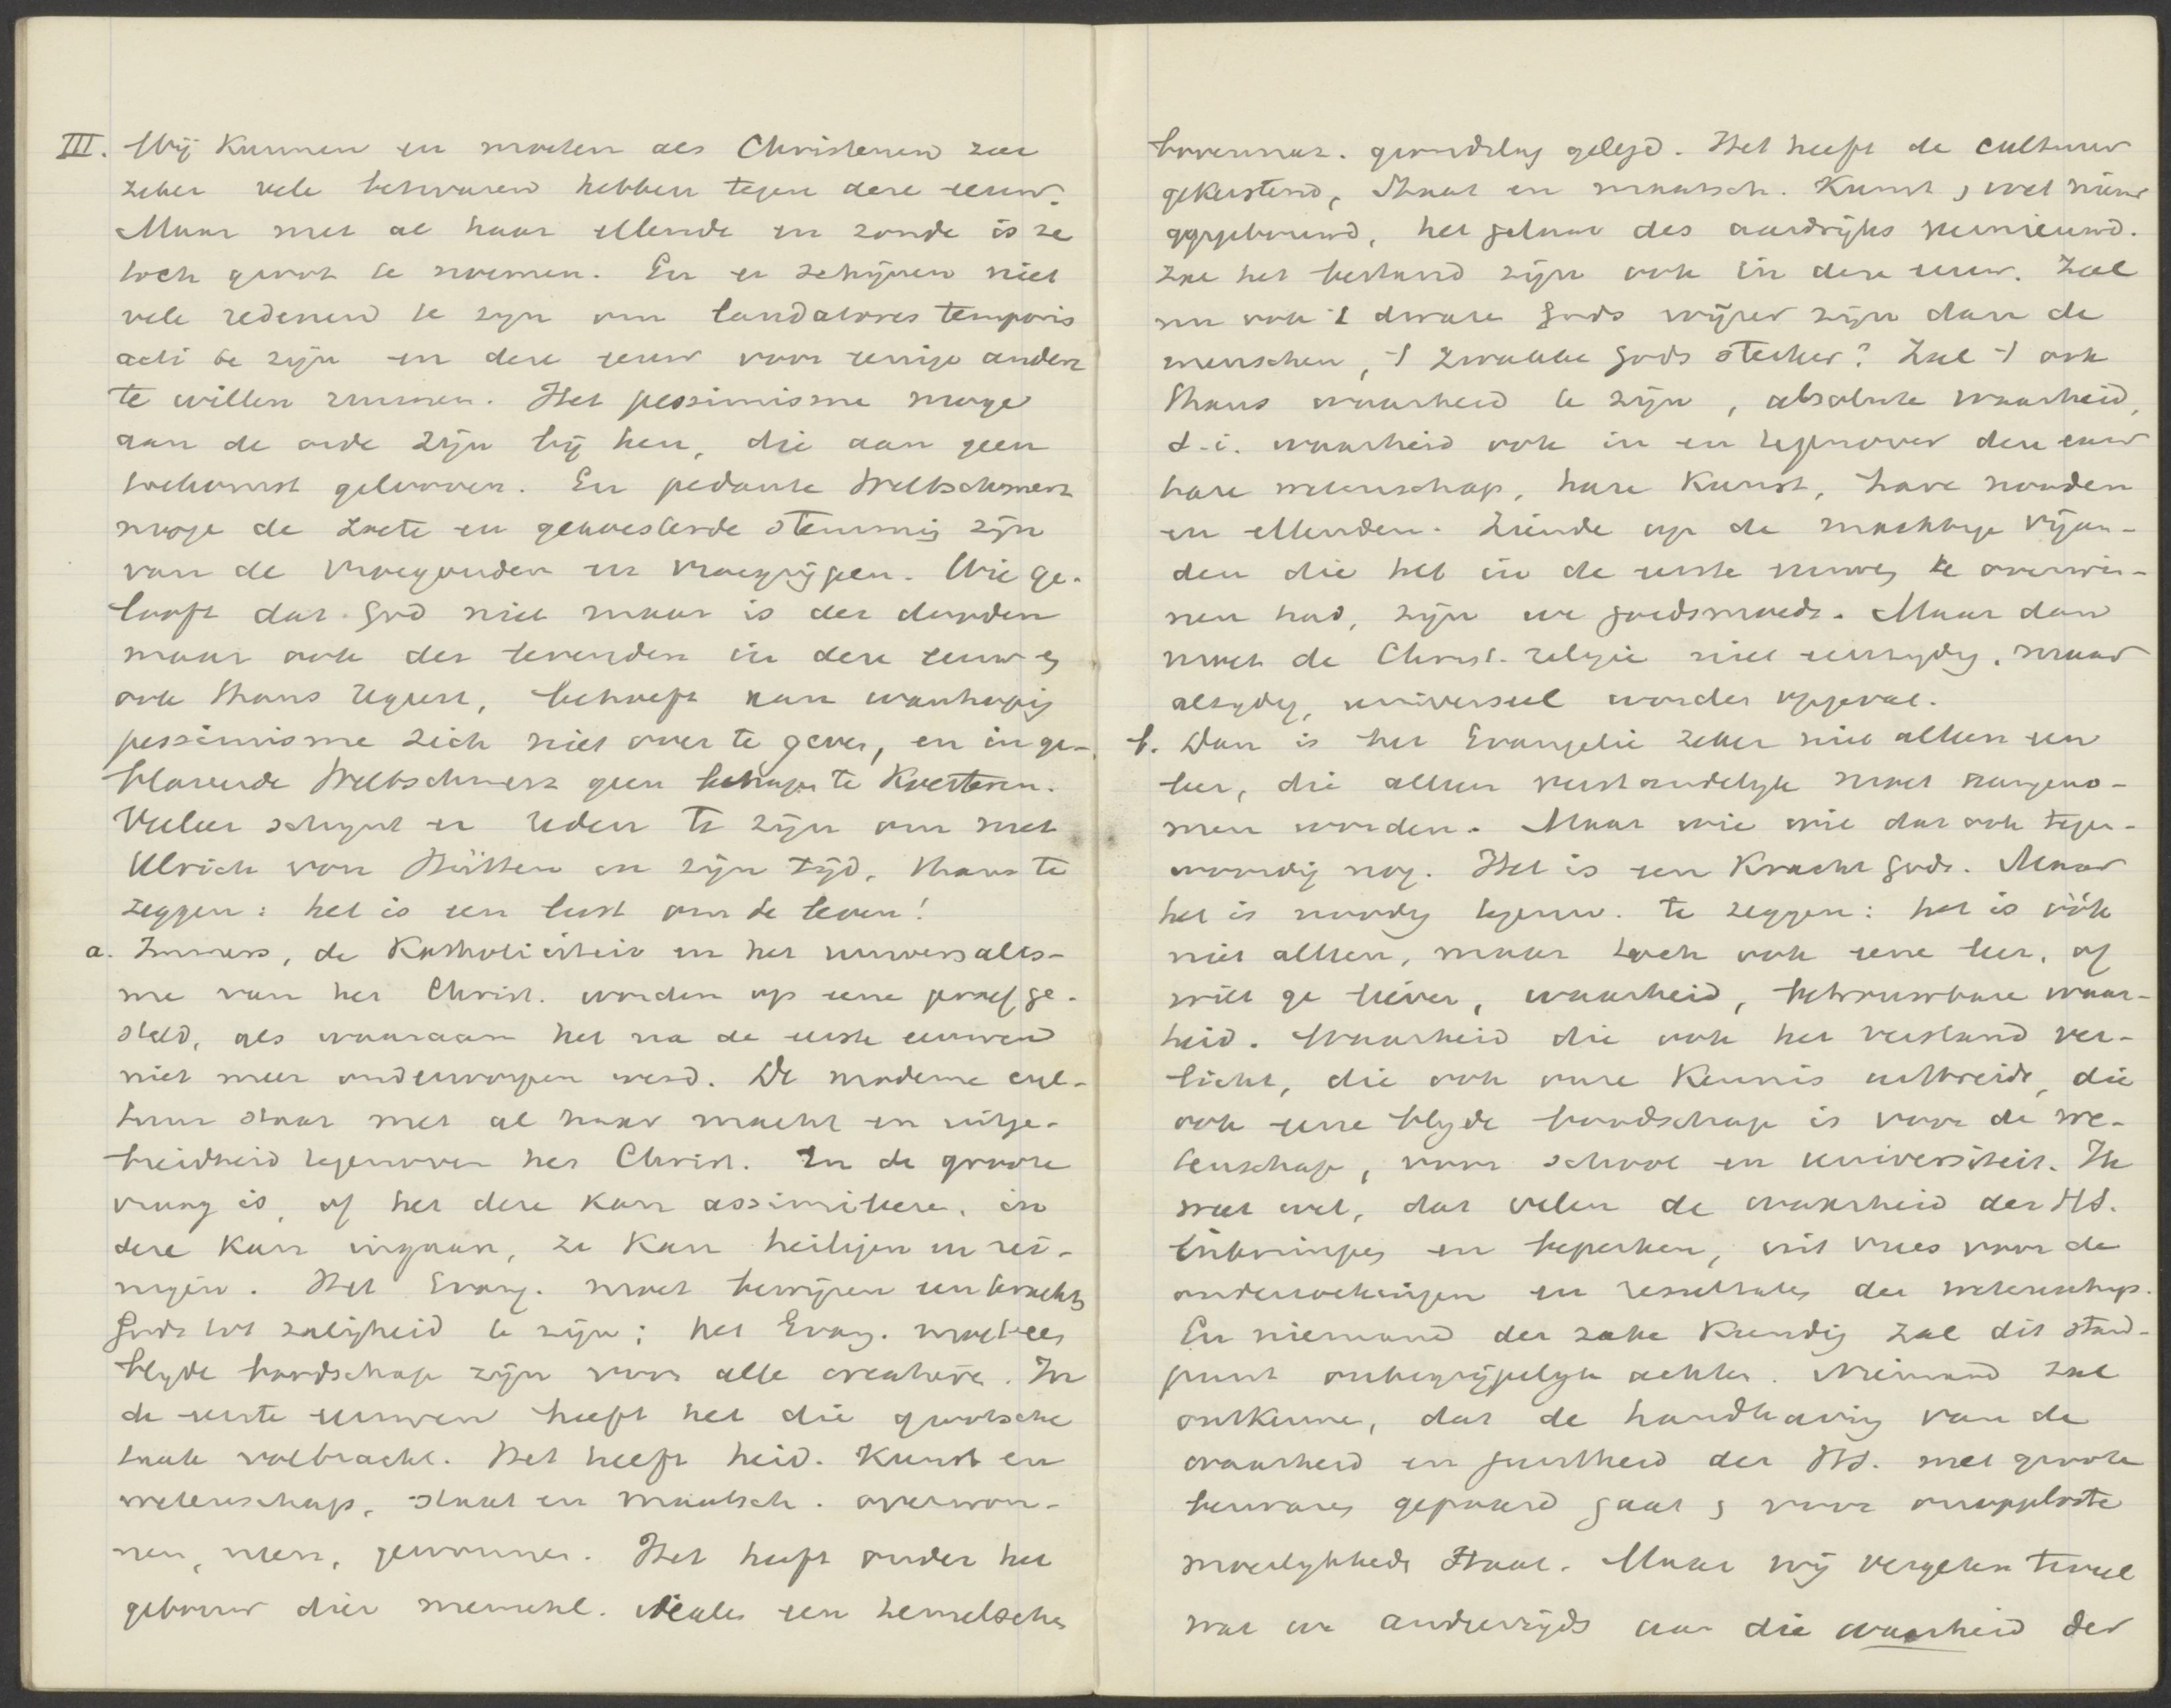 III. Wij kunnen en moeten als Christenen zeer
zeker vele bezwaren hebben tegen deze eeuw.
Maar met al haar ellende en zonde is ze
toch groot te noemen. En er schijnen niet
vele redenen te zyn om laudatores temporis
acti te zijn en deze eeuw voor eenige andere
te willen ruilen. Het pessimisme moge
aan de orde zijn bij hen, die aan geen
toekomst gelooven. En pedante Weltschmerz
moge de zoete en gekoesterde stemming zijn
van de vroegouden en vroegrijpen. Wie ge-
looft dat God niet maar is der dooden
maar ook der levenden in deze eeuw en
ook thans regeert, behoeft aan wanhopig
pessimisme zich niet over te geven, en in ge-
blaseerde Weltschmerz geen behagen te koesteren.
Veeleer schynt er reden te zijn om met
Ulrich von Hütten in zijn tijd, thans te
zeggen: het is een lust om te leven!
a. Immers, de Katholiciteit en het universalis-
me van het Christ. worden op eene proef ge-
steld, als waaraan het na de eerste eeuwen
niet meer onderworpen werd. De moderne cul-
tuur staat met al haar macht en uitge-
breidheid tegenover het Christ. En de groote
vraag is, of het deze kan assimileren, in
deze kan ingaan, ze kan heiligen en rei-
nigen. Het Evang. moet bewijzen een kracht
Gods tot zaligheid te zijn; het Evang. moet een
blyde boodschap zijn voor alle creaturen. In
de eerste eeuwen heeft het die grootsche
taak volbracht. Het heeft heid. Kunst en
wetenschap, staat en maatsch. overwon-
nen, neen, gewonnen. Het heeft onder het
gebouw dier menschl. idealen een hemelsche
bovennat. grondslag gelegd. Het heeft de cultuur
gekerstend, Staat en maatsch. Kunst, wet nieuw
opgebouwd, het gelaat des aardrijks vernieuwd.
Zal het bestand zijn ook in deze eeuw. Zal
nu ook 't dwaze Gods wijzer zijn dan de
menschen, 't zwakke Gods sterker? Zal 't ook
thans waarheid te zijn, absolute waarheid,
d.i. waarheid ook in en tegenover deze eeuw
hare wetenschap, hare Kunst, hare nooden
en ellenden. Ziende op de machtige vijan-
den die het in de eerste eeuwen te overwin-
nen had, zijn we goedsmoeds. Maar dan
moet de Christ. religie niet eenzydig, maar
alzydig, universeel worden opgevat.
b. Dan is het Evangelie zeker niet alleen een
leer, die alleen verstandelyk moet aangeno-
men worden. Maar wie wil dat ook tegen-
woordig nog. Het is een Kracht Gods. Maar
het is noodig tegenw. te zeggen: het is óók
niet alleen, maar toch ook eene leer, of
wilt ge liever, waarheid, betrouwbare waar-
heid. Waarheid die ook het verstand ver-
licht, die ook onze Kennis uitbreidt, die
ook eene blyde boodschap is voor de we-
tenschap, voor school en universiteit. Ik
weet wel, dat velen de waarheid der HS.
inkrimpen en beperken, uit vrees voor de
onderzoekingen en resultaten der wetenschap.
En niemand der zake Kundig zal dit stand-
punt onbegrijpelyk achten. Niemand zal
ontkennen, dat de handhaving van de
waarheid en juistheid der HS. met groote
bezwaren gepaard gaat, voor onopgeloste
moeilykheden staat. Maar wij vergeten teveel
wat we anderzijds aan die waarheid der